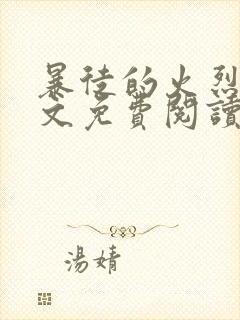 暴徒的火烈
文免費閱讀
湯婧